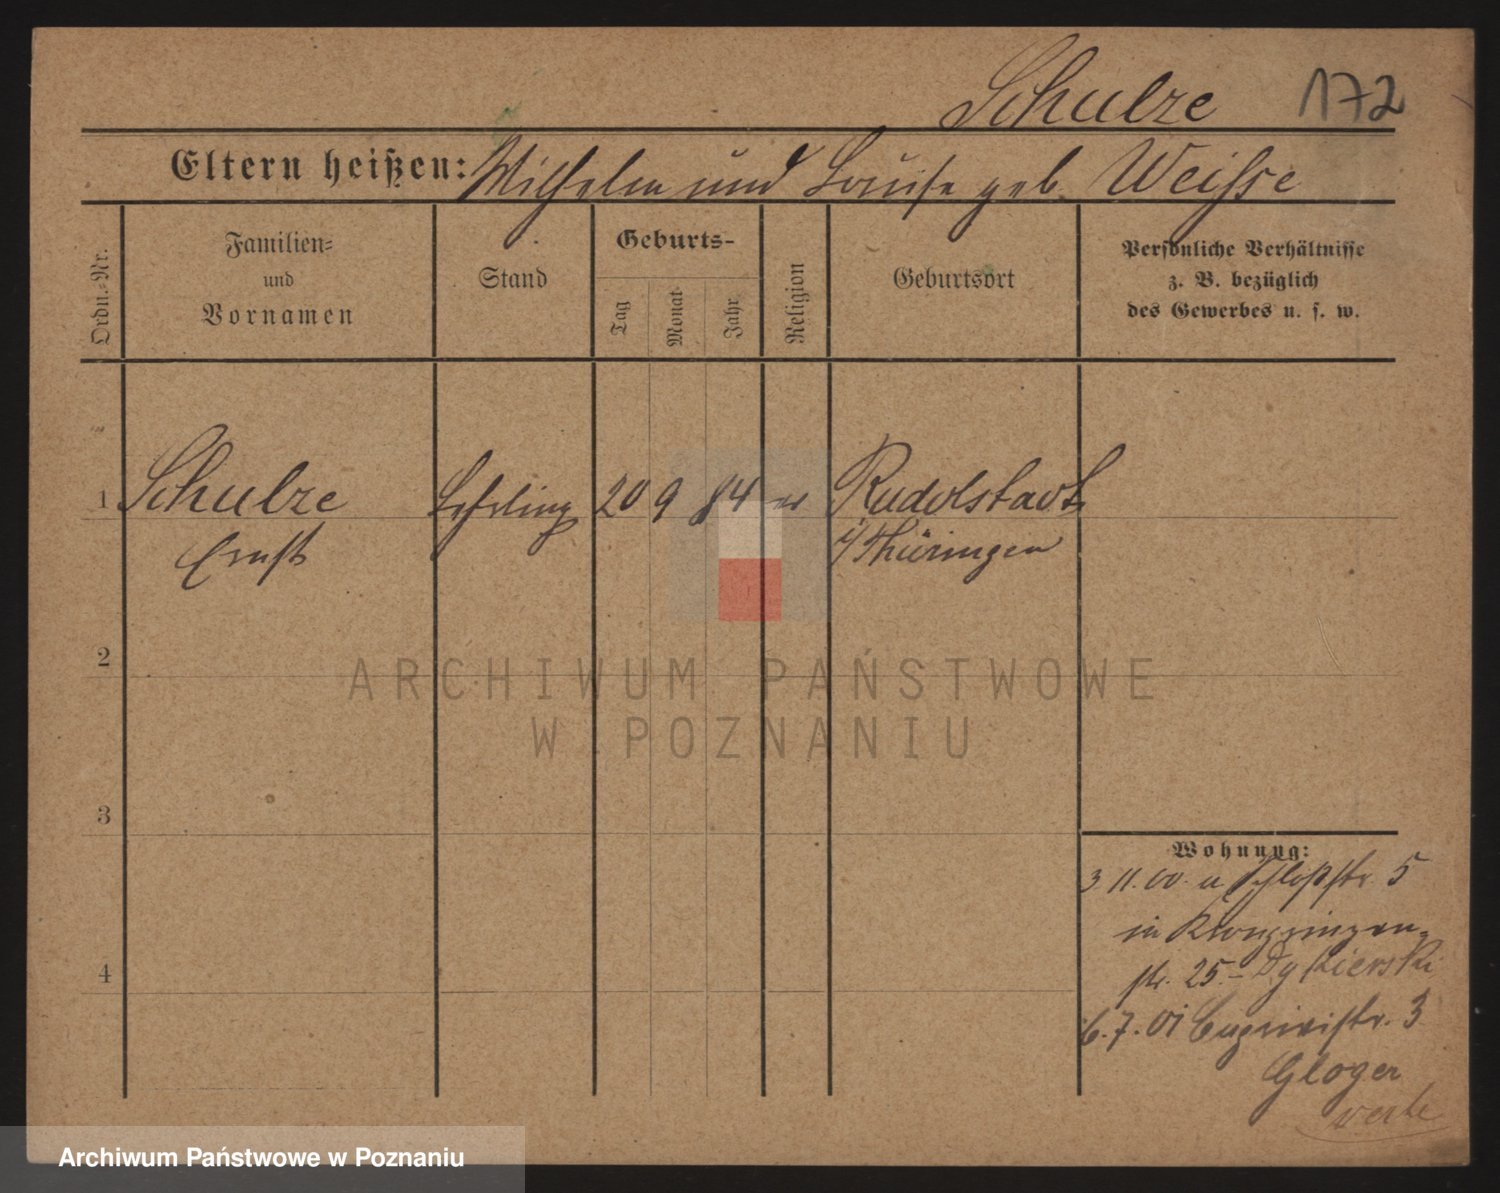 Schulze 172
Eltern heißen: Wilhelm und Louise geb. Weihse
Ordn.-Nr.
Familien=
und
Vornamen
Stand
Geburts-
Tag
Monat
Jahr
Religion
Geburtsort
Persönliche Verhältnisse
z. B. bezüglich
des Gewerbes u. s. w.
1 Schulze Lehrling 20 9 84 ev Rudolstadt
Ernst i/Thüringen
2
ARCHIWUM PAŃSTWOWE
W POZNANIU
3
4
Wohnung:
3. 11. 00. u Schloßstr. 5
in Kronprinzen-
str. 25.-
6. 7. 01 str. 3
Gloger
Archiwum Państwowe w Poznaniu